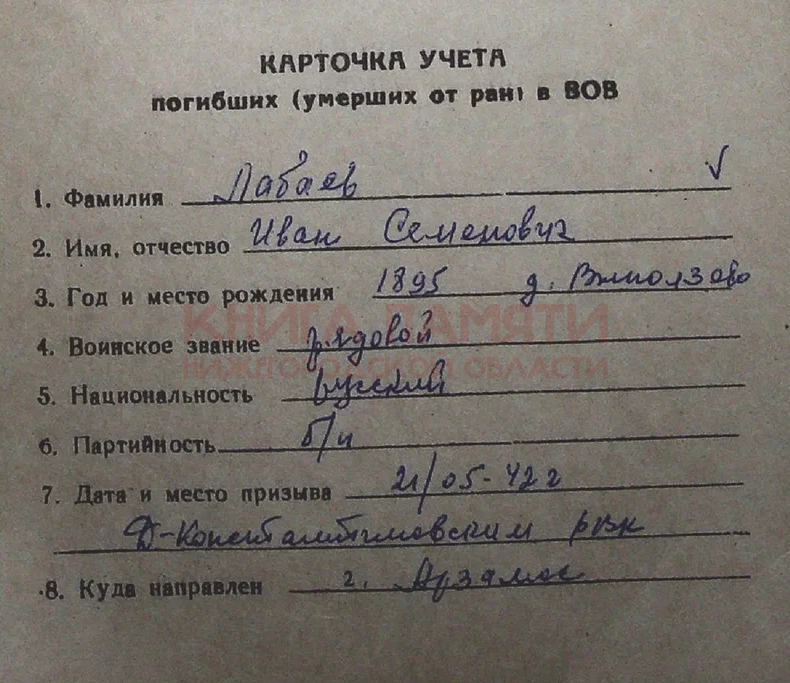 КАРТОЧКА УЧЕТА
погибших (умерших от ран) в ВОВ
1. Фамилия Лабаев
2. Имя, отчество Иван Семенович
3. Год и место рождения 1895 д.
4. Воинское звание рядовой
КНИГА ПАМЯТИ
НИЖЕГОРОДСКОЙ ОБЛАСТИ
5. Национальность русский
6. Партийность б/п
7. Дата и место призыва 21/05-42 г
Д-Константиновским РВК
8. Куда направлен г. Арзамас